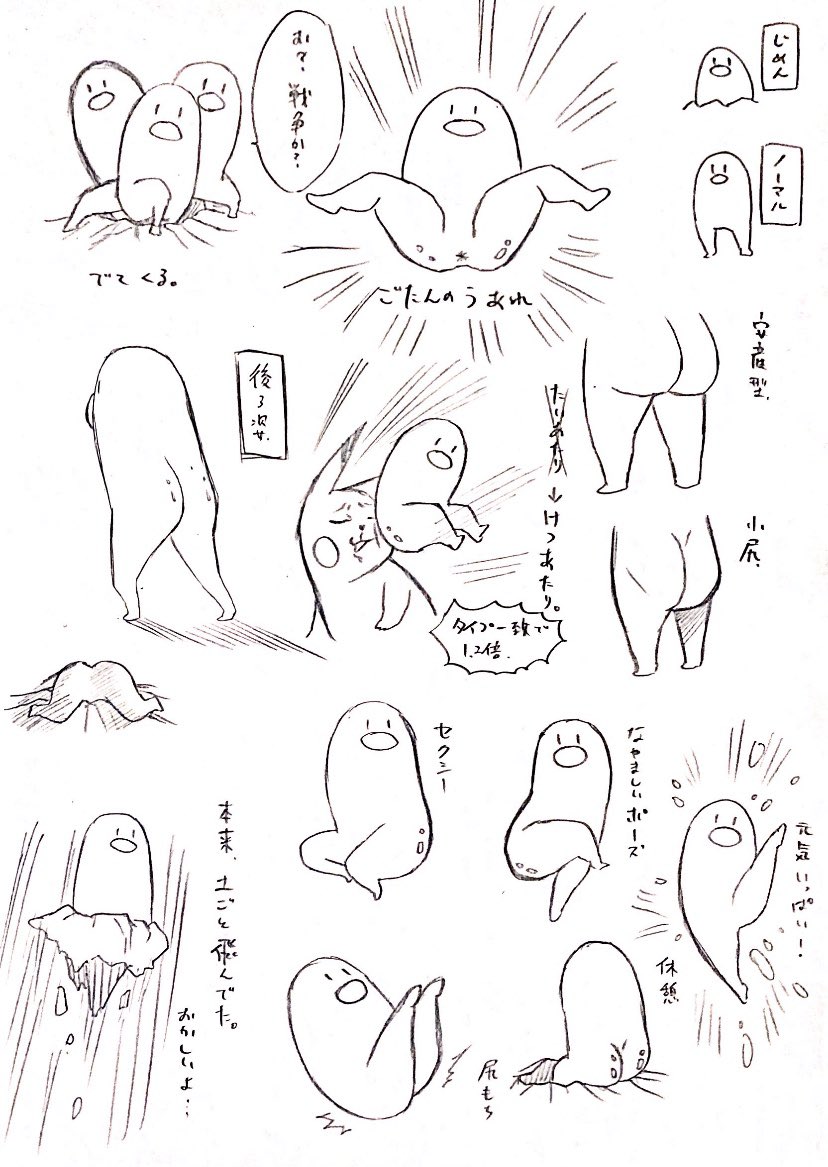 じめん
ノーマル
お？、戦争か？
でてくる。
ごたんのうあれ
安産型、
小尻、
後ろ姿、
たいあたり
↓けつあたり。
タイプ一致で
1.2倍.
セクシー
なやましいポーズ
元気いっぱい！
本来、土ごと飛んでた。
おかしいよ…
休憩
尻もち